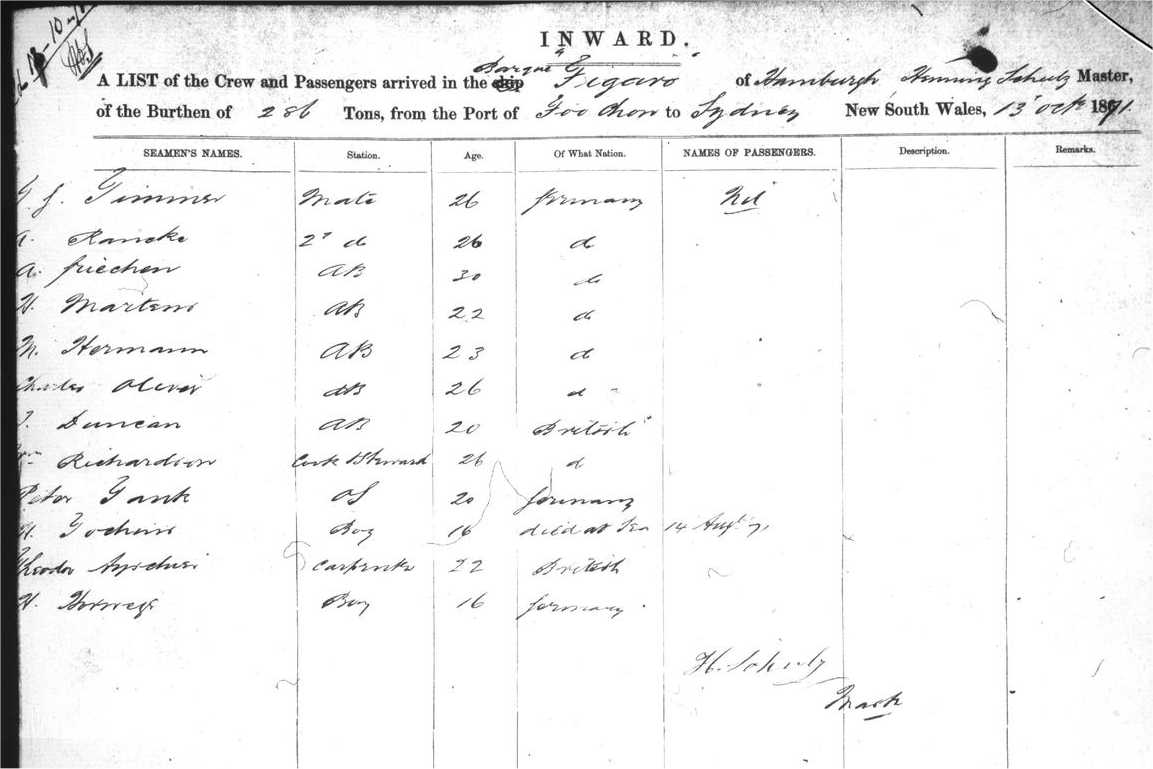 INWARD.
A LIST of the Crew and Passengers arrived in the ship Barque Figaro of Hamburgh Henning Schulz Master,
of the Burthen of 286 Tons, from the Port of Foo Chow to Sydney New South Wales, 13 Octr 1871.
SEAMEN'S NAMES. Station. Age. Of What Nation. NAMES OF PASSENGERS. Description. Remarks.
Timmer Mate 26 Germany Nil
A. Rancke 2d do 26 do
A. Friechen AB 30 do
H. Martens AB 22 do
M. Hermann AB 23 do
Charles Oliver AB 26 do
Duncan AB 20 British
Wm Richardson Cook & Steward 26 do
Peter Yank OS 20 Germany
Jochims Boy 16 died at Sea 14 Augt 71
Theodor Carpenter 22 British
H. Boy 16 Germany
H. Schulz